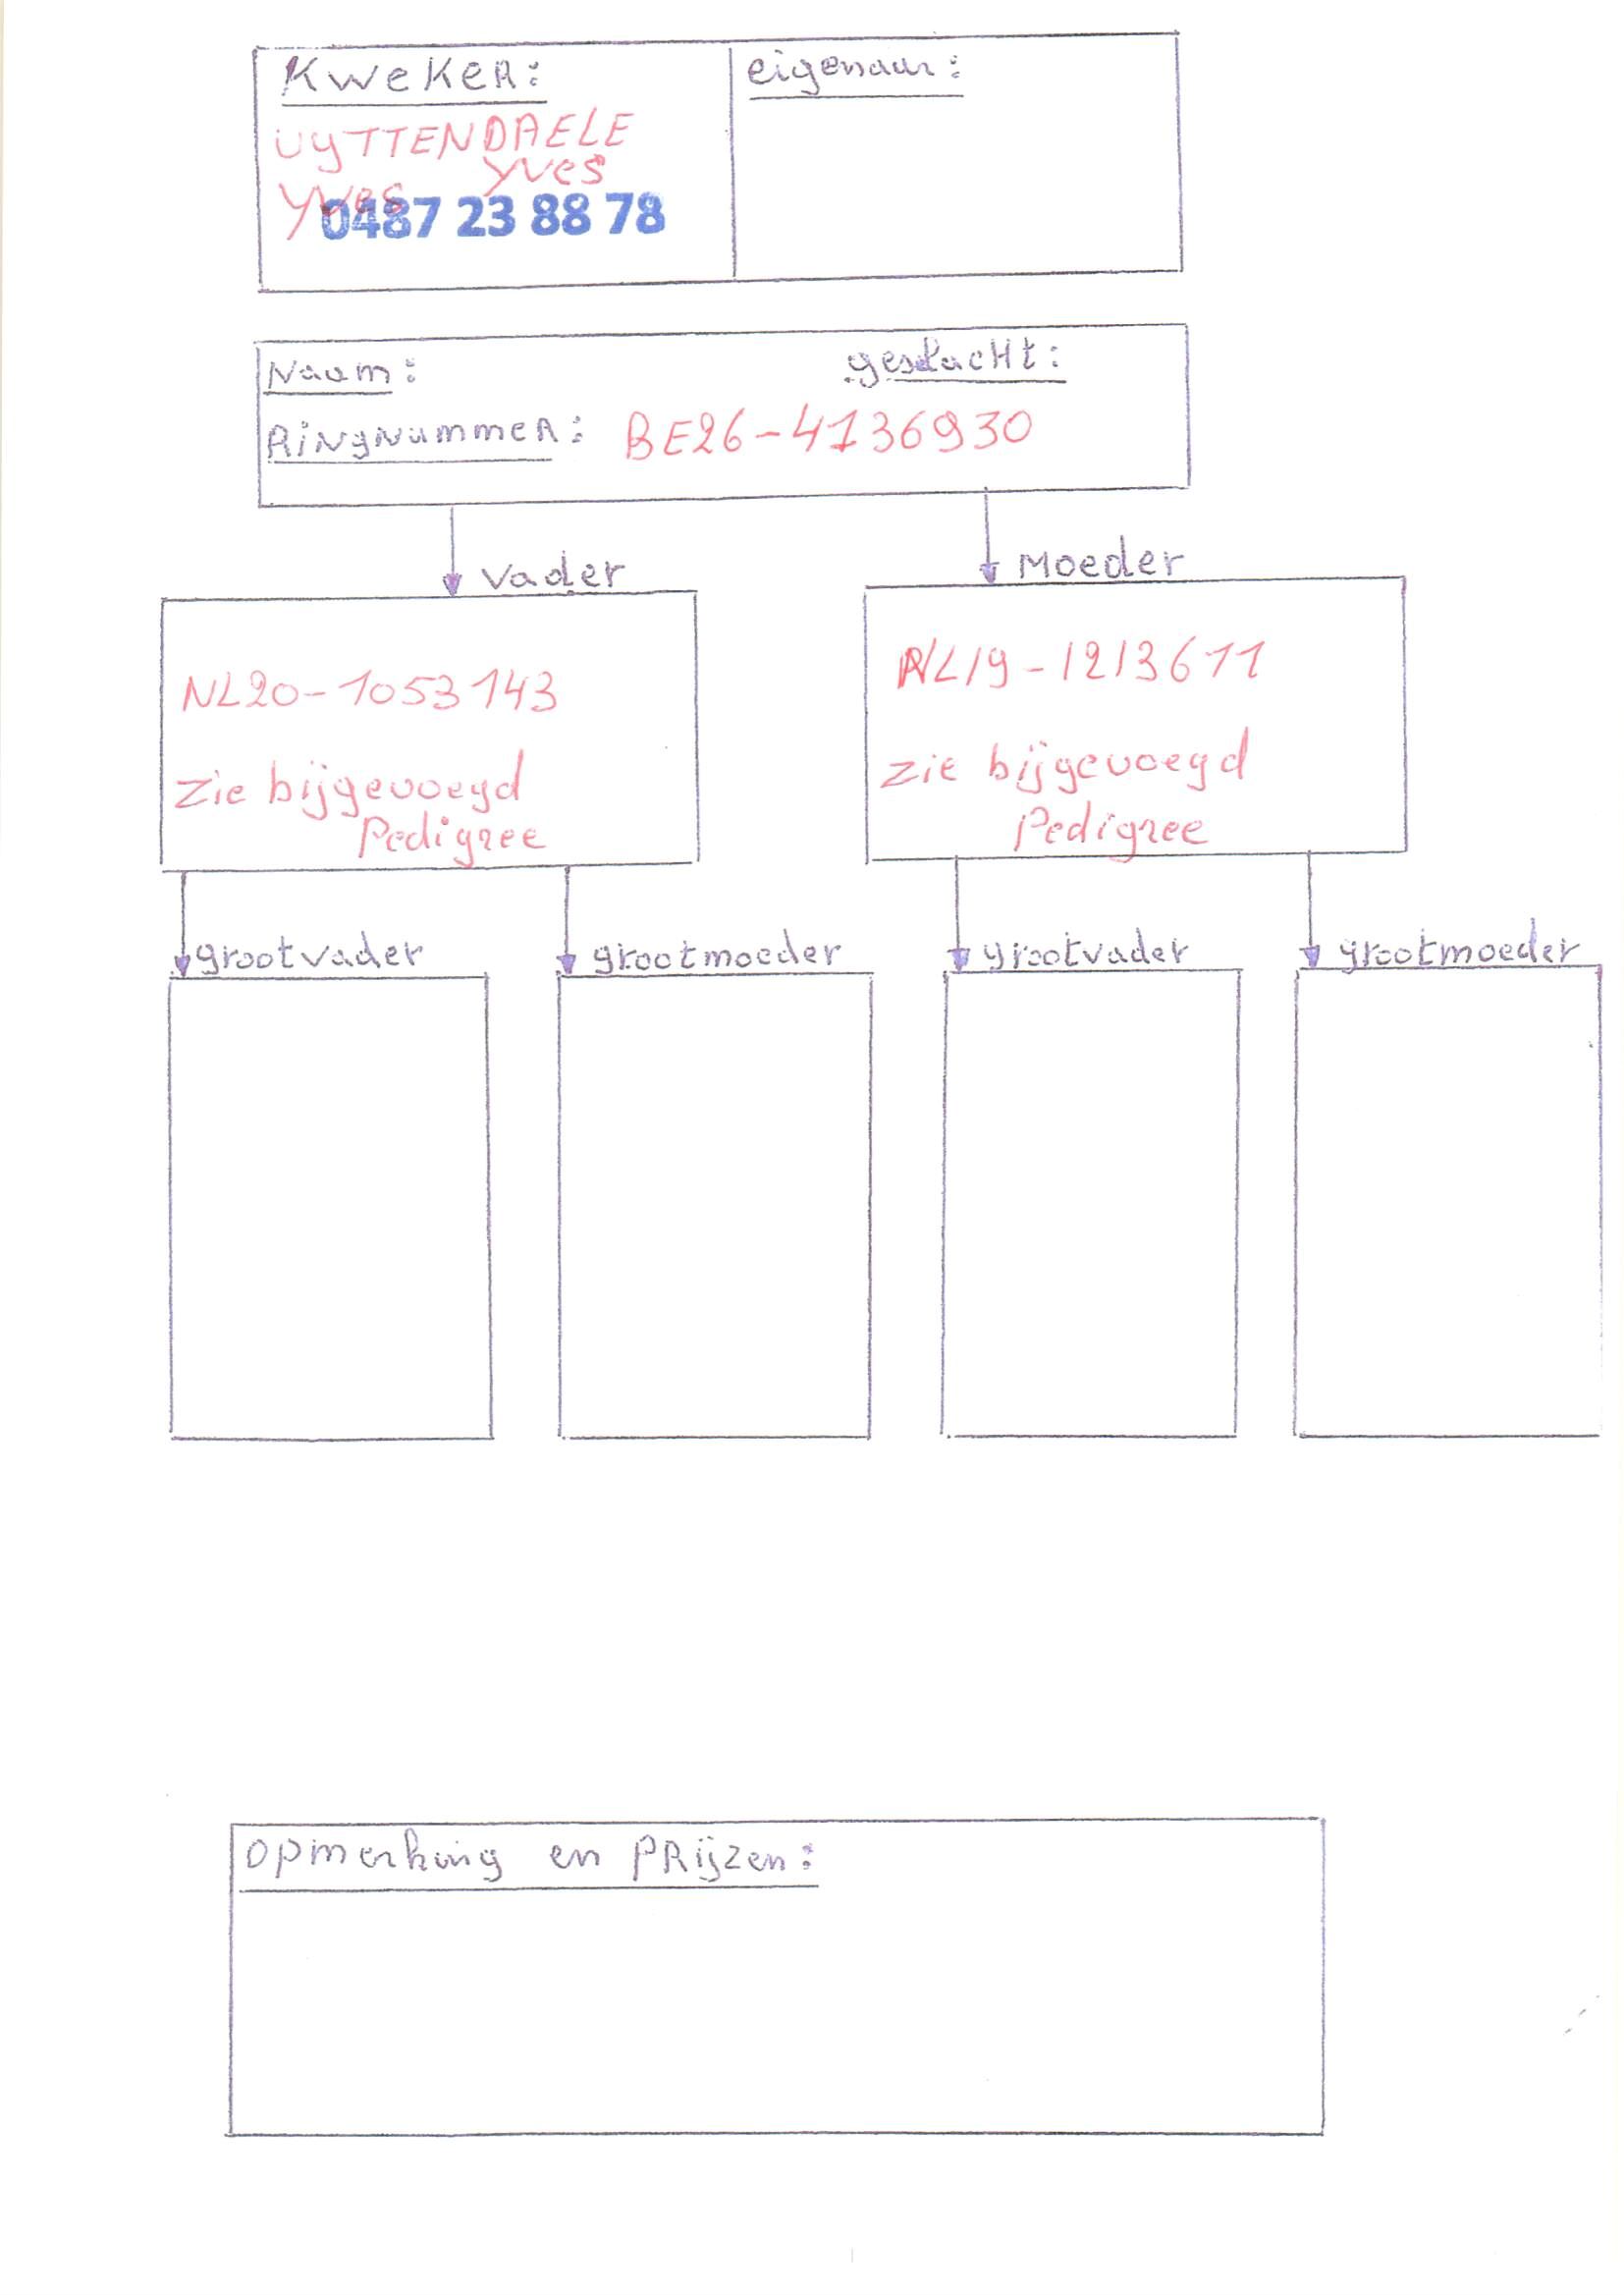 KWEKER:
UYTTENDAELE
YVES
YVES
0487 23 88 78
eigenaar:
Naam:
geslacht:
Ringnummer: BE26-4136930
Vader
NL20-1053143
Zie bijgevoegd
Pedigree
Moeder
NL19-1213611
Zie bijgevoegd
Pedigree
grootvader
grootmoeder
grootvader
grootmoeder
opmerking en PRijzen: